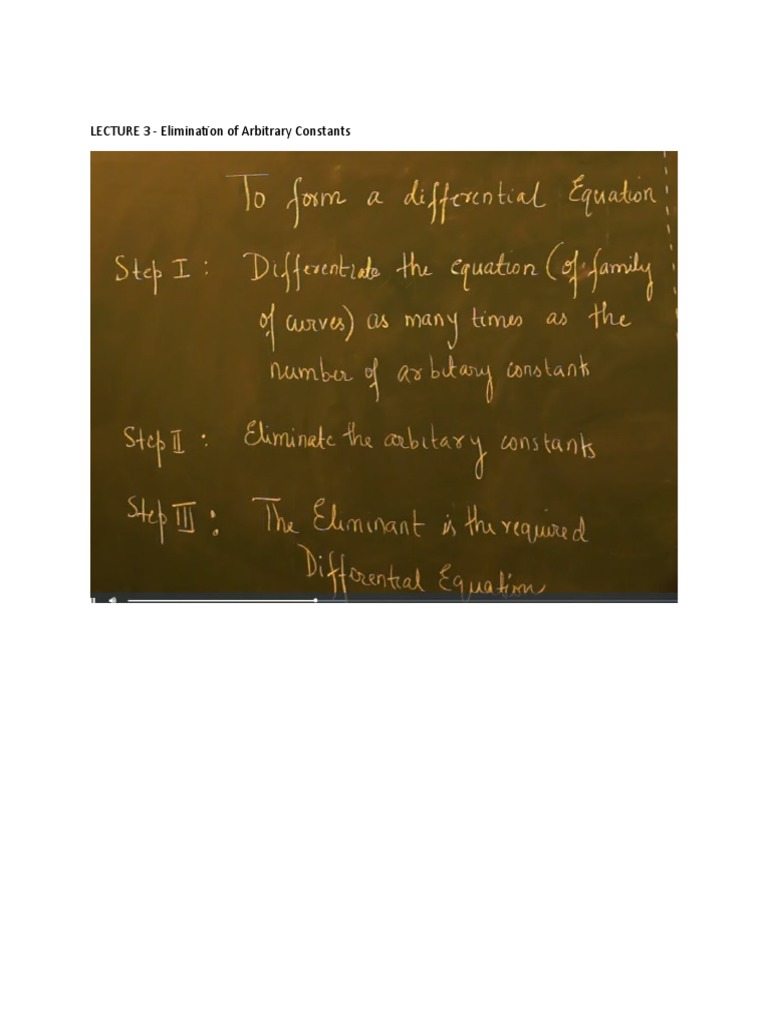 LECTURE 3 - Elimination of Arbitrary Constants
To form a differential Equation
Step I : Differentiate the equation (of family
of curves) as many times as the
number of arbitary constants
Step II : Eliminate the arbitary constants
Step III : The Eliminant is the required
Differential Equation